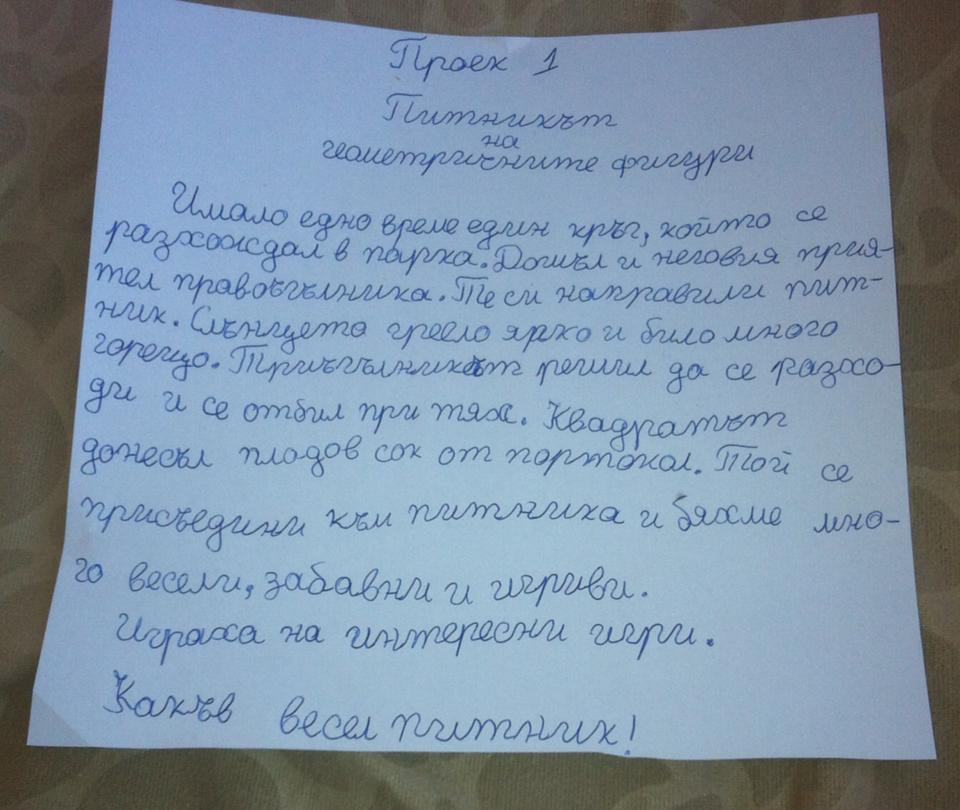 Проек 1
Питникът
на
геометричните фигури
Имало едно време един кръг, който се
разхождал в парка. Дошъл и неговия прия-
тел правоъгълника. Те си направили пит-
ник. Слънцето греело ярко и било много
горещо. Триъгълникът решил да се разхо-
ди и се отбил при тях. Квадратът
донесъл плодов сок от портокал. Той се
присъедини към питника и бяхме мно-
го весели, забавни и игриви.
Играха на интересни игри.
Какъв весел питник!